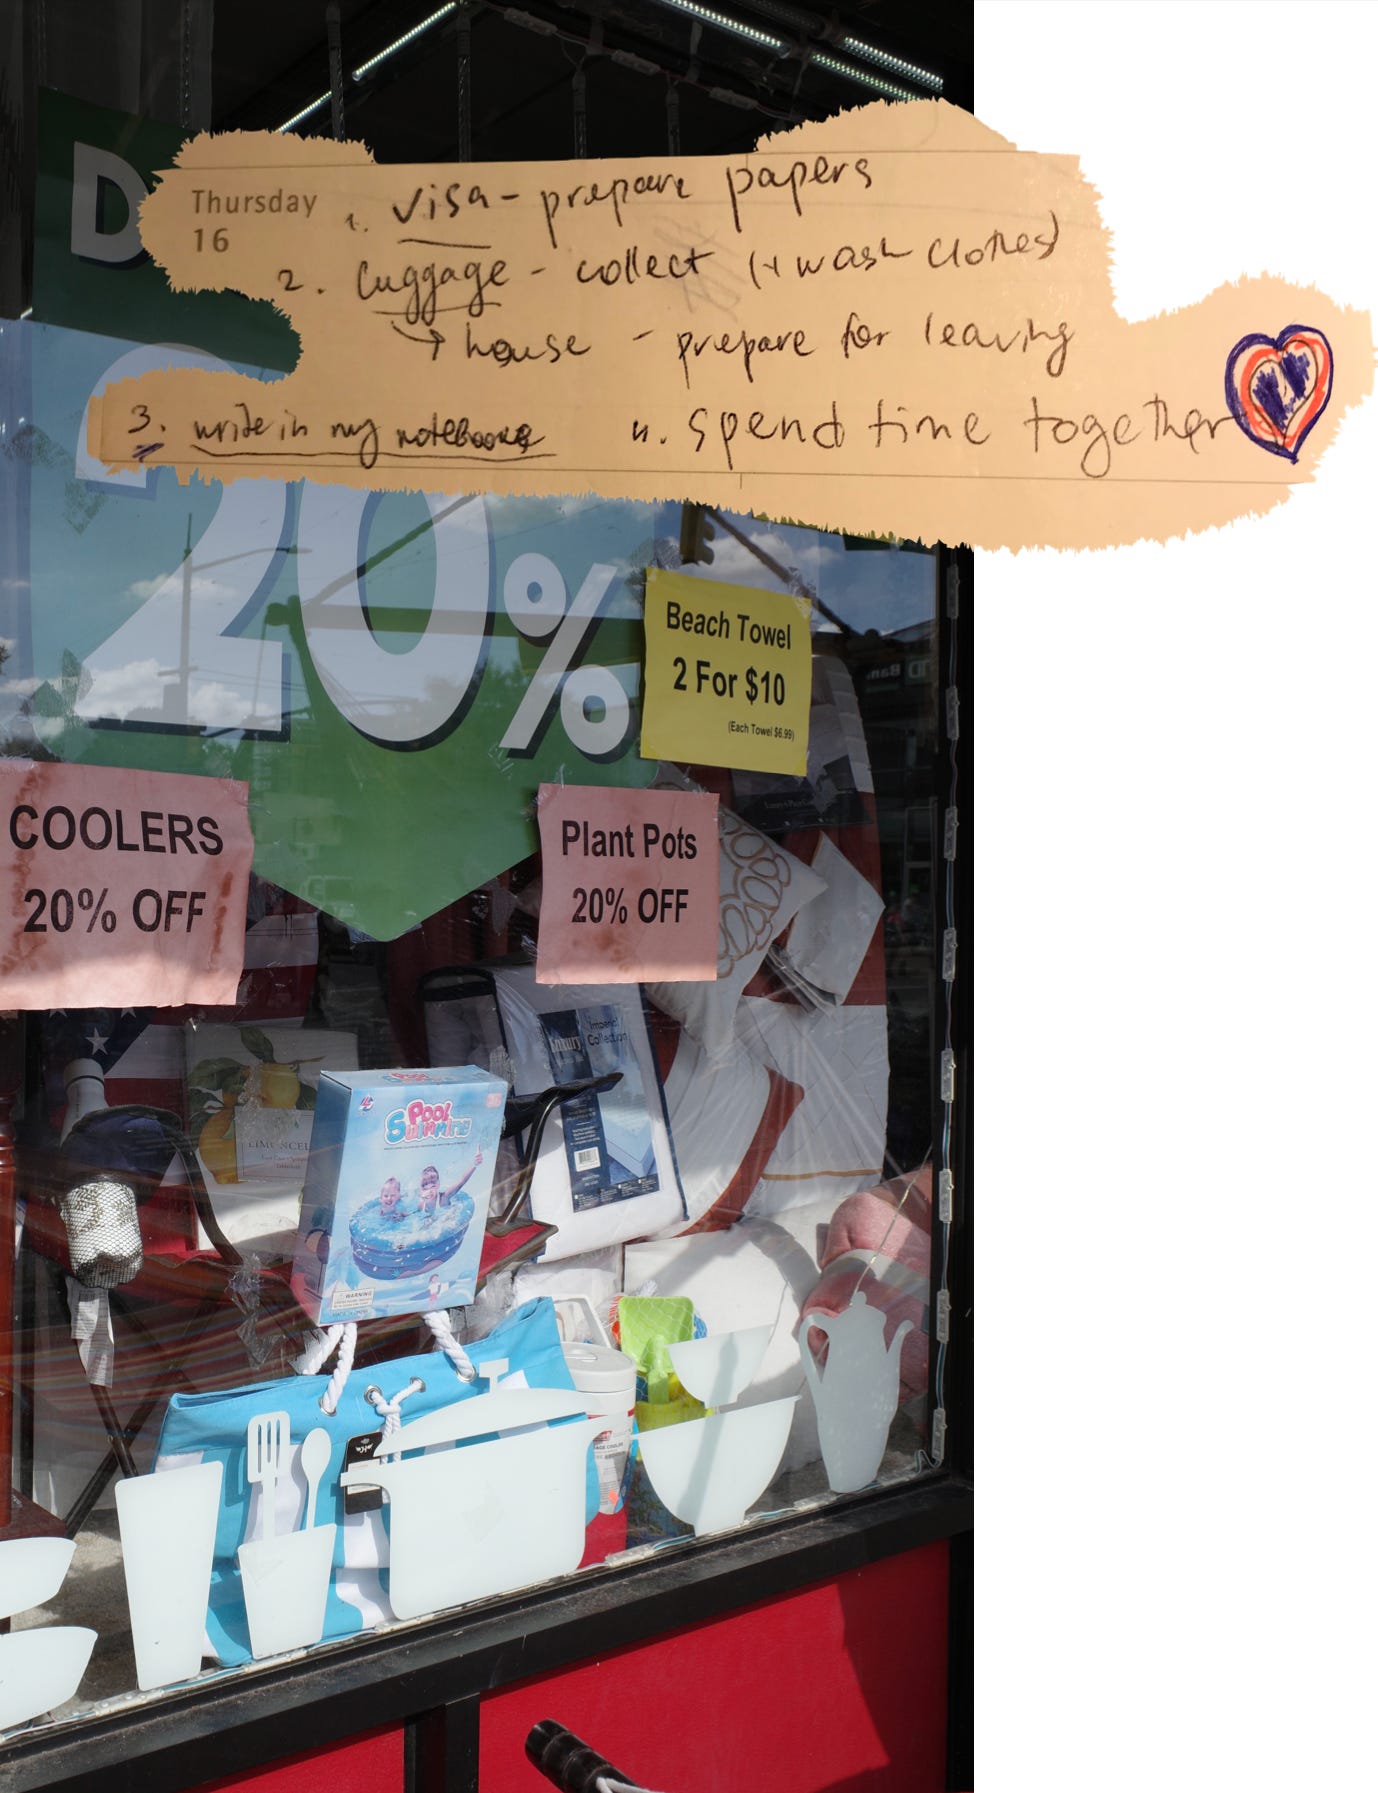 Thursday
16
1. Visa - prepare papers
2. Luggage - collect (+ wash clothes)
→ house - prepare for leaving
3. write in my notebook
4. spend time together
D
20%
Beach Towel
2 For $10
(Each Towel $6.99)
COOLERS
20% OFF
Plant Pots
20% OFF
Imperial
Collection
Luxury
POOL
SWIMMING
WARNING